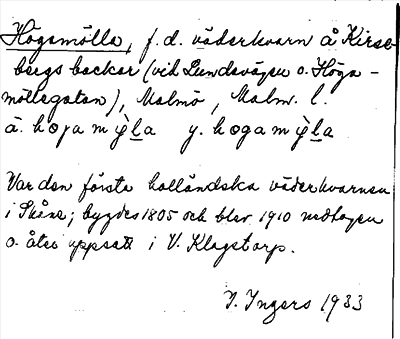 Högamölla, f.d. väderkvarn å Kirse-
bergs backar (vid Lundavägen o. Höga-
möllegatan), Malmö, Malm. l.
ä. hoga mỳla y. hogamỳla
Var den första holländska väderkvarnen
i Skåne; bygdes 1805 och blev 1910 nedtagen
o. åter uppsatt i V. Klagstorp.
I. Ingers 1933